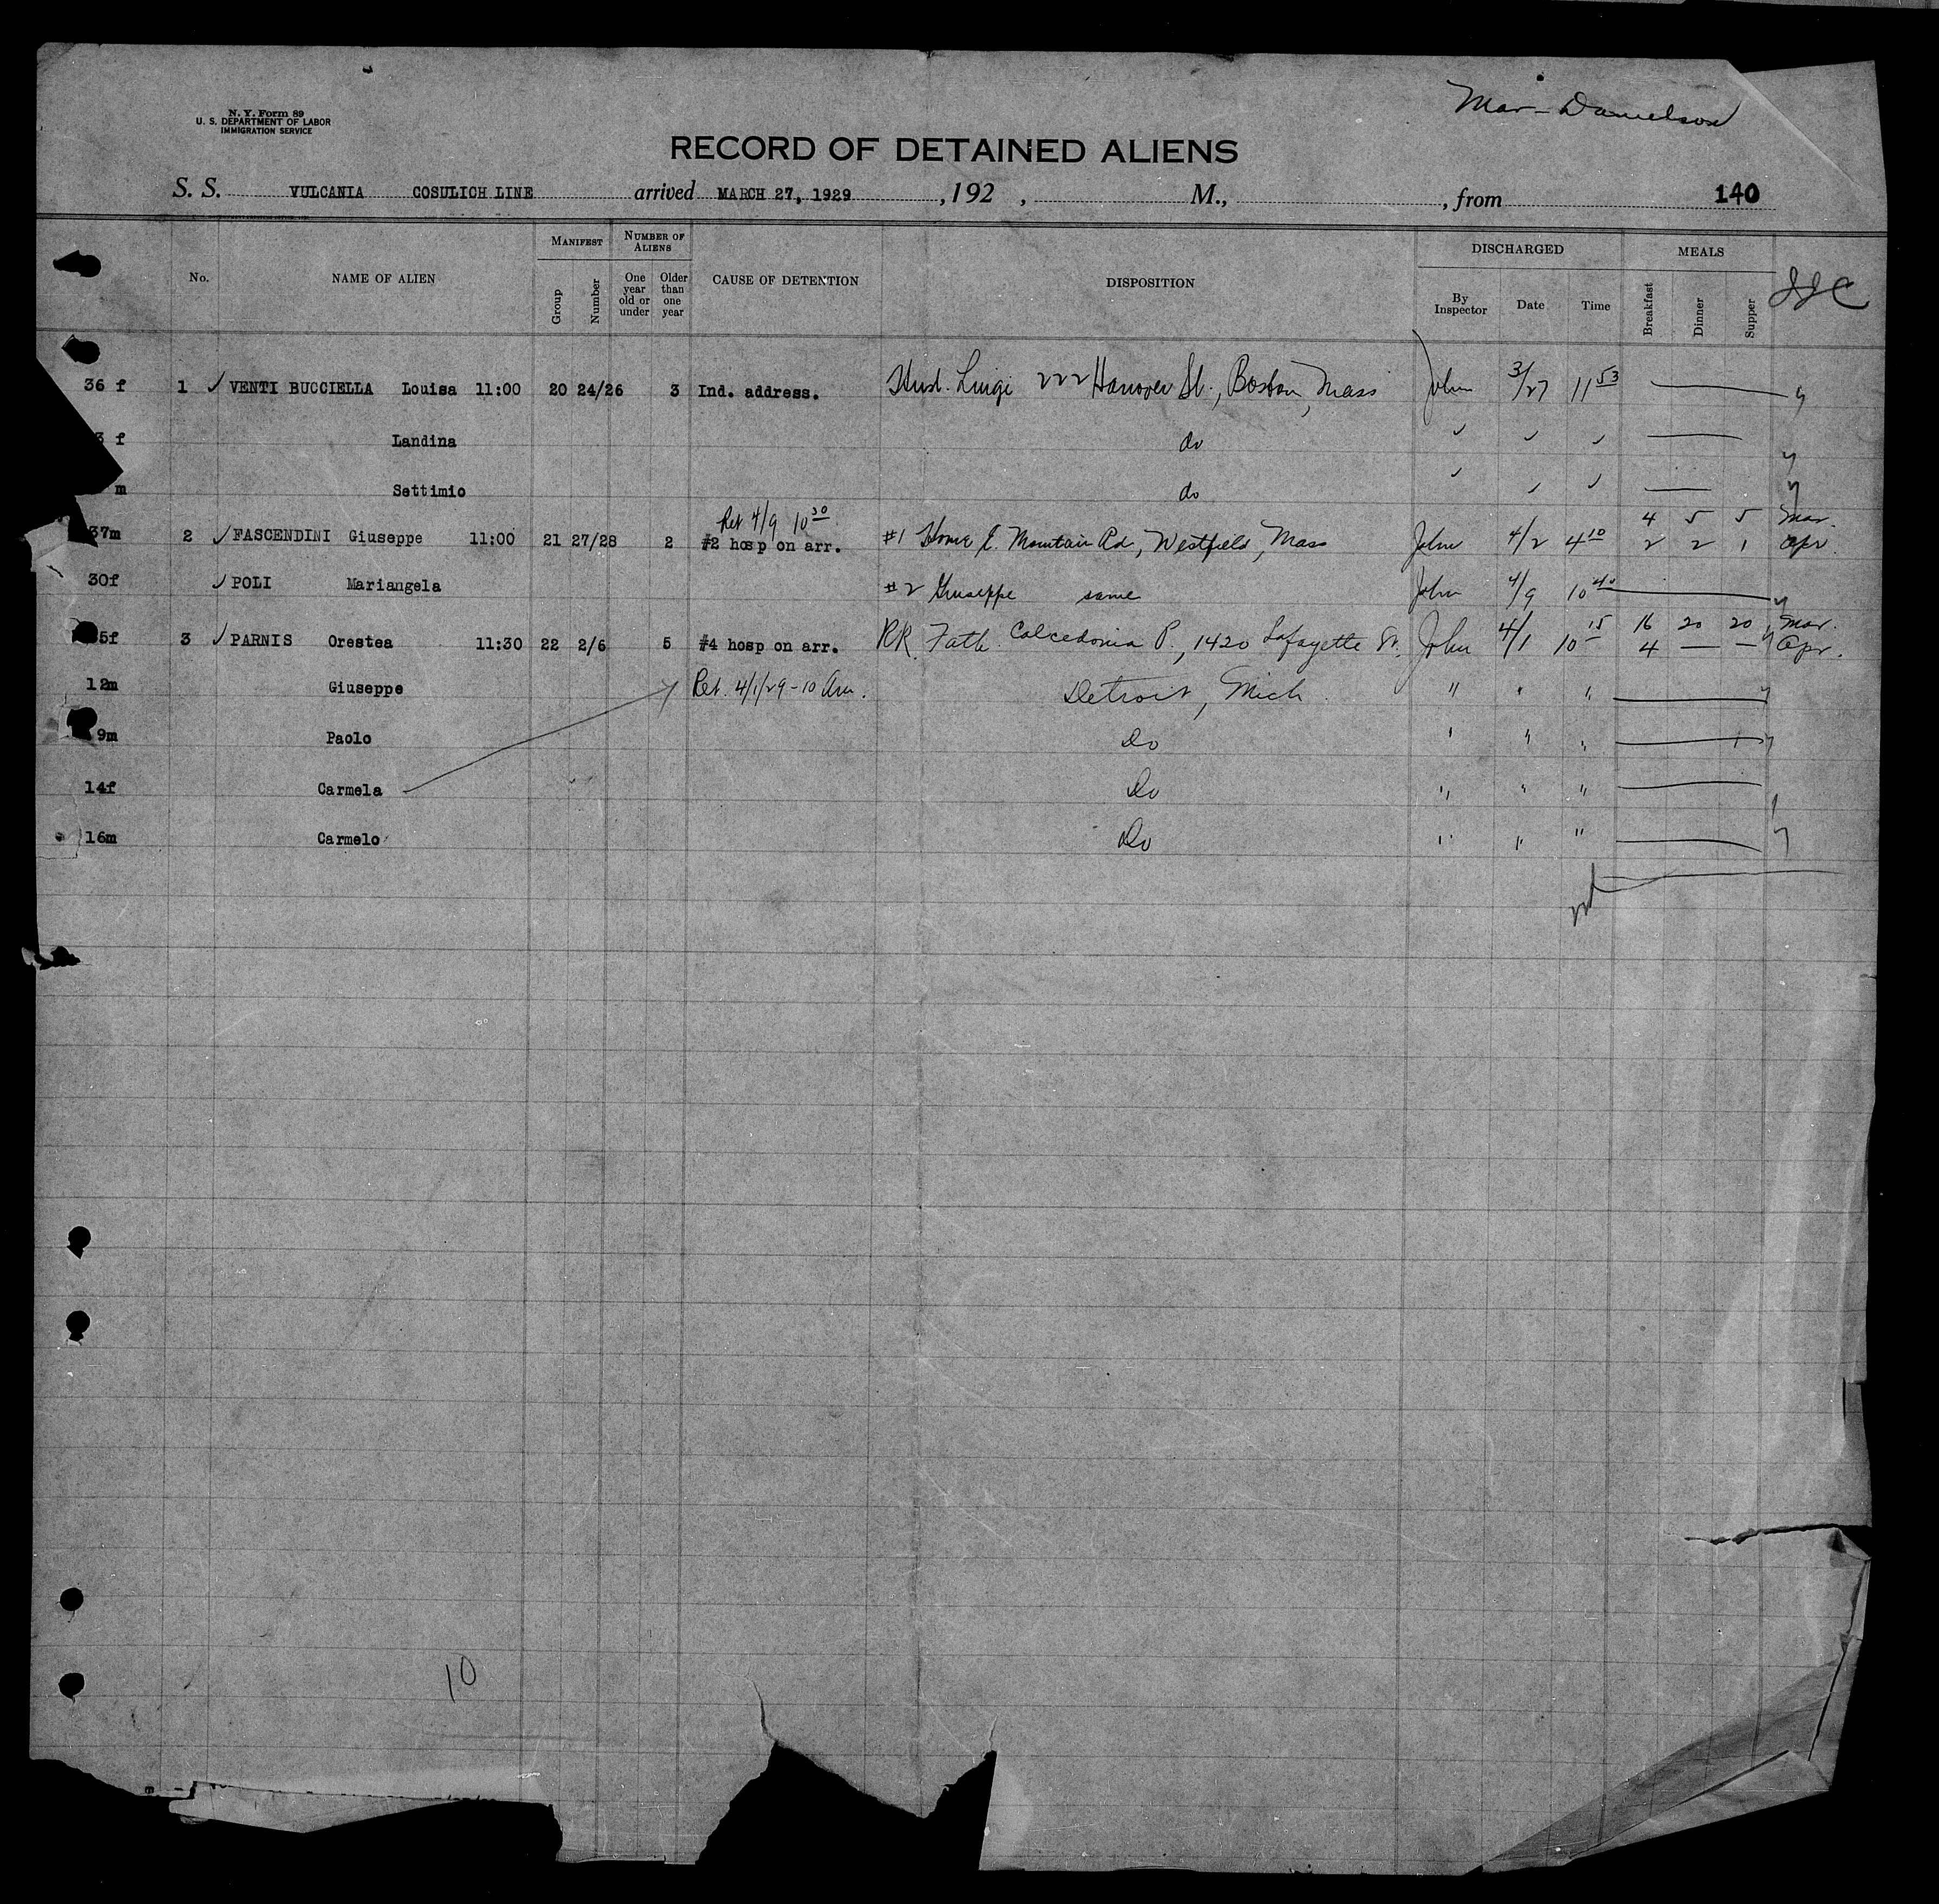 Mar - Danielson
N. Y. Form 89
U. S. DEPARTMENT OF LABOR
IMMIGRATION SERVICE
RECORD OF DETAINED ALIENS
S. S. VULCANIA COSULICH LINE arrived MARCH 27, 1929, 192 , M., , from 140
No. NAME OF ALIEN MANIFEST Group Number NUMBER OF ALIENS One year old or under Older than one year CAUSE OF DETENTION DISPOSITION DISCHARGED By Inspector Date Time MEALS Breakfast Dinner Supper
36 f 1 ✓ VENTI BUCCIELLA Louisa 11:00 20 24/26 3 Ind. address. Husb. Luigi 222 Hanover St., Boston, Mass John 3/27 11 53
f Landina do ✓ ✓ ✓
m Settimio do ✓ ✓ ✓
Ret 4/9 10 30 4 5 5 Mar.
37m 2 ✓ FASCENDINI Giuseppe 11:00 21 27/28 2 #2 hosp on arr. #1 Home E. Mountain Rd, Westfield, Mass John 4/2 4 10 2 2 1 Apr.
30f ✓ POLI Mariangela #2 Giuseppe same John 4/9 10 40
16 20 20 Mar.
5f 3 ✓ PARNIS Orestea 11:30 22 2/6 5 #4 hosp on arr. RR Fath. Calcedonia P., 1420 Lafayette St. John 4/1 10 15 4 — — Apr.
12m Giuseppe Ret. 4/1/29 - 10 Am. Detroit, Mich. " " "
9m Paolo Do " " "
14f Carmela Do " " "
16m Carmelo Do " " "
10